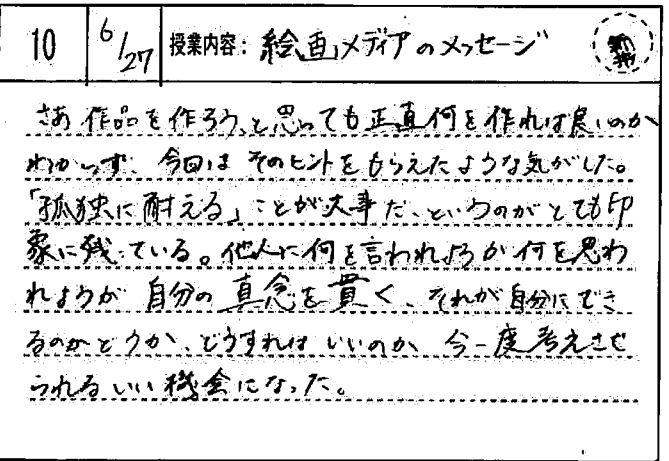 10 6/27 授業内容: 絵画メディアのメッセージ
さあ作品を作ろう、と思っても正直何を作れば良いのか
わからず、今回はそのヒントをもらえたような気がした。
「孤独に耐える」ことが大事だ、というのがとても印
象に残っている。他人に何を言われようが何を思わ
れようが自分の真念を貫く、それが自分にでき
るのかどうか、どうすればいいのか、今一度考えさせ
られるいい機会になった。